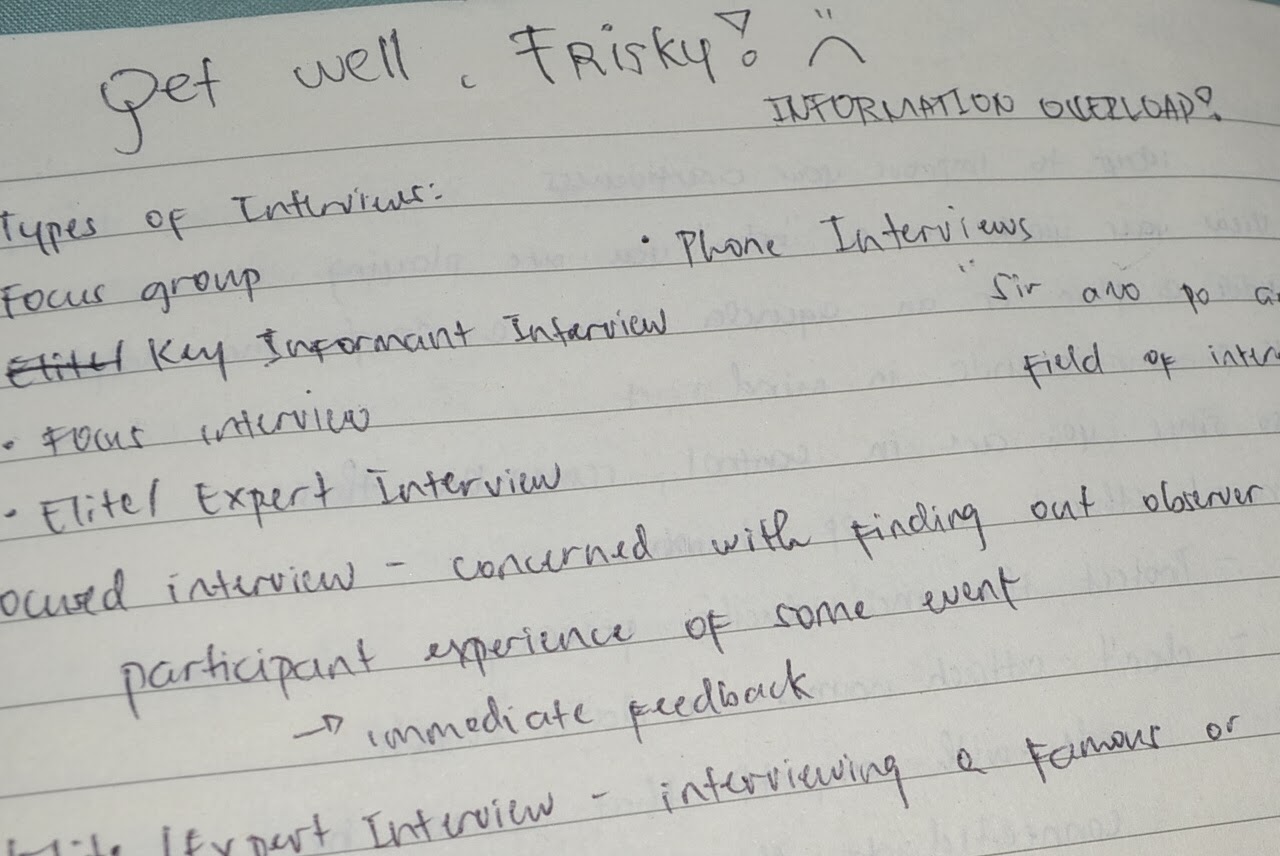 get well, Frisky! :(
INFORMATION OVERLOAD!
Types of Interviews:
Focus group
• Phone Interviews
Key Informant Interview
"Sir ano po
• Focus interview
Field of
• Elite/ Expert Interview
interview - concerned with finding out observer
participant experience of some event
→ immediate feedback
Expert Interview - interviewing a famous or